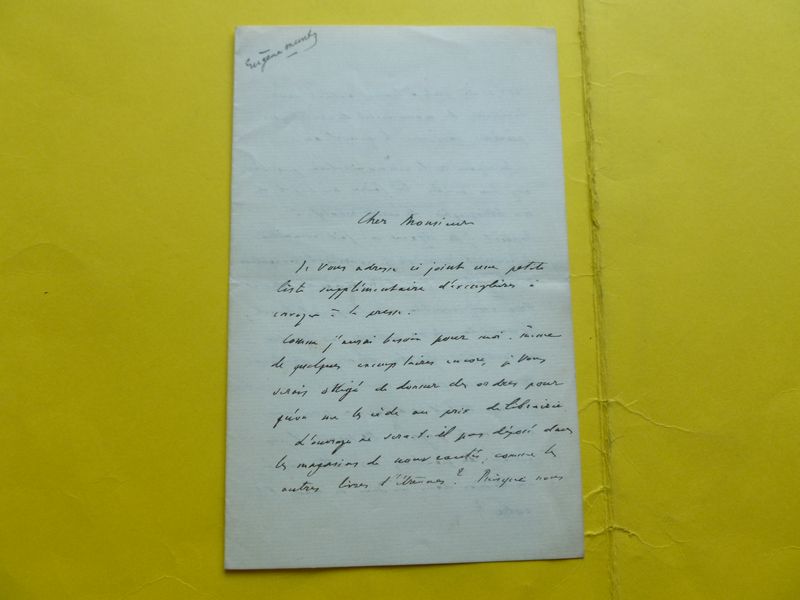 Eugène Muntz
Cher Monsieur
Je vous adresse ci joint une petite
liste supplémentaire d'exemplaires à
envoyer à la presse.
Comme j'aurai besoin pour moi-même
de quelques exemplaires encore, je vous
serais obligé de donner des ordres pour
qu'on me les cède au prix de librairie
d'ouvrage ne sera-t-il pas déposé dans
les magasins de nouveautés, comme les
autres livres d'étrennes? Puisque nous